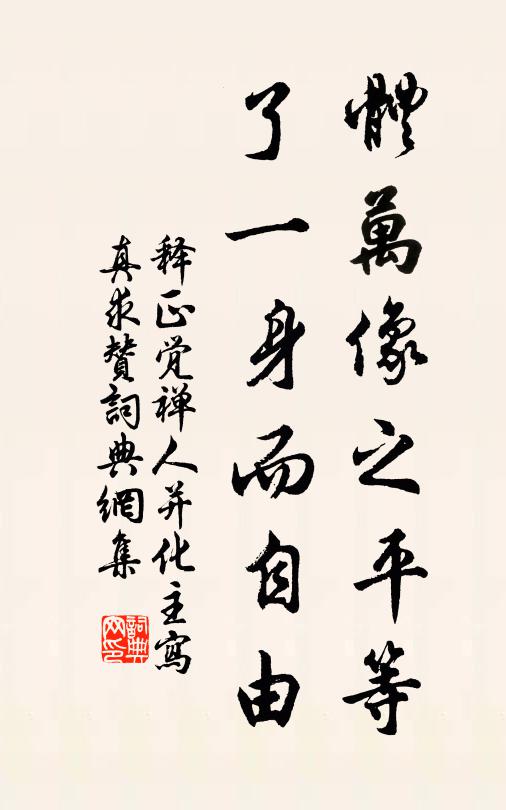 體萬像之平等
了一身而自由
释正觉禅人并化主寫
真求赞詞典網集
詞典网印